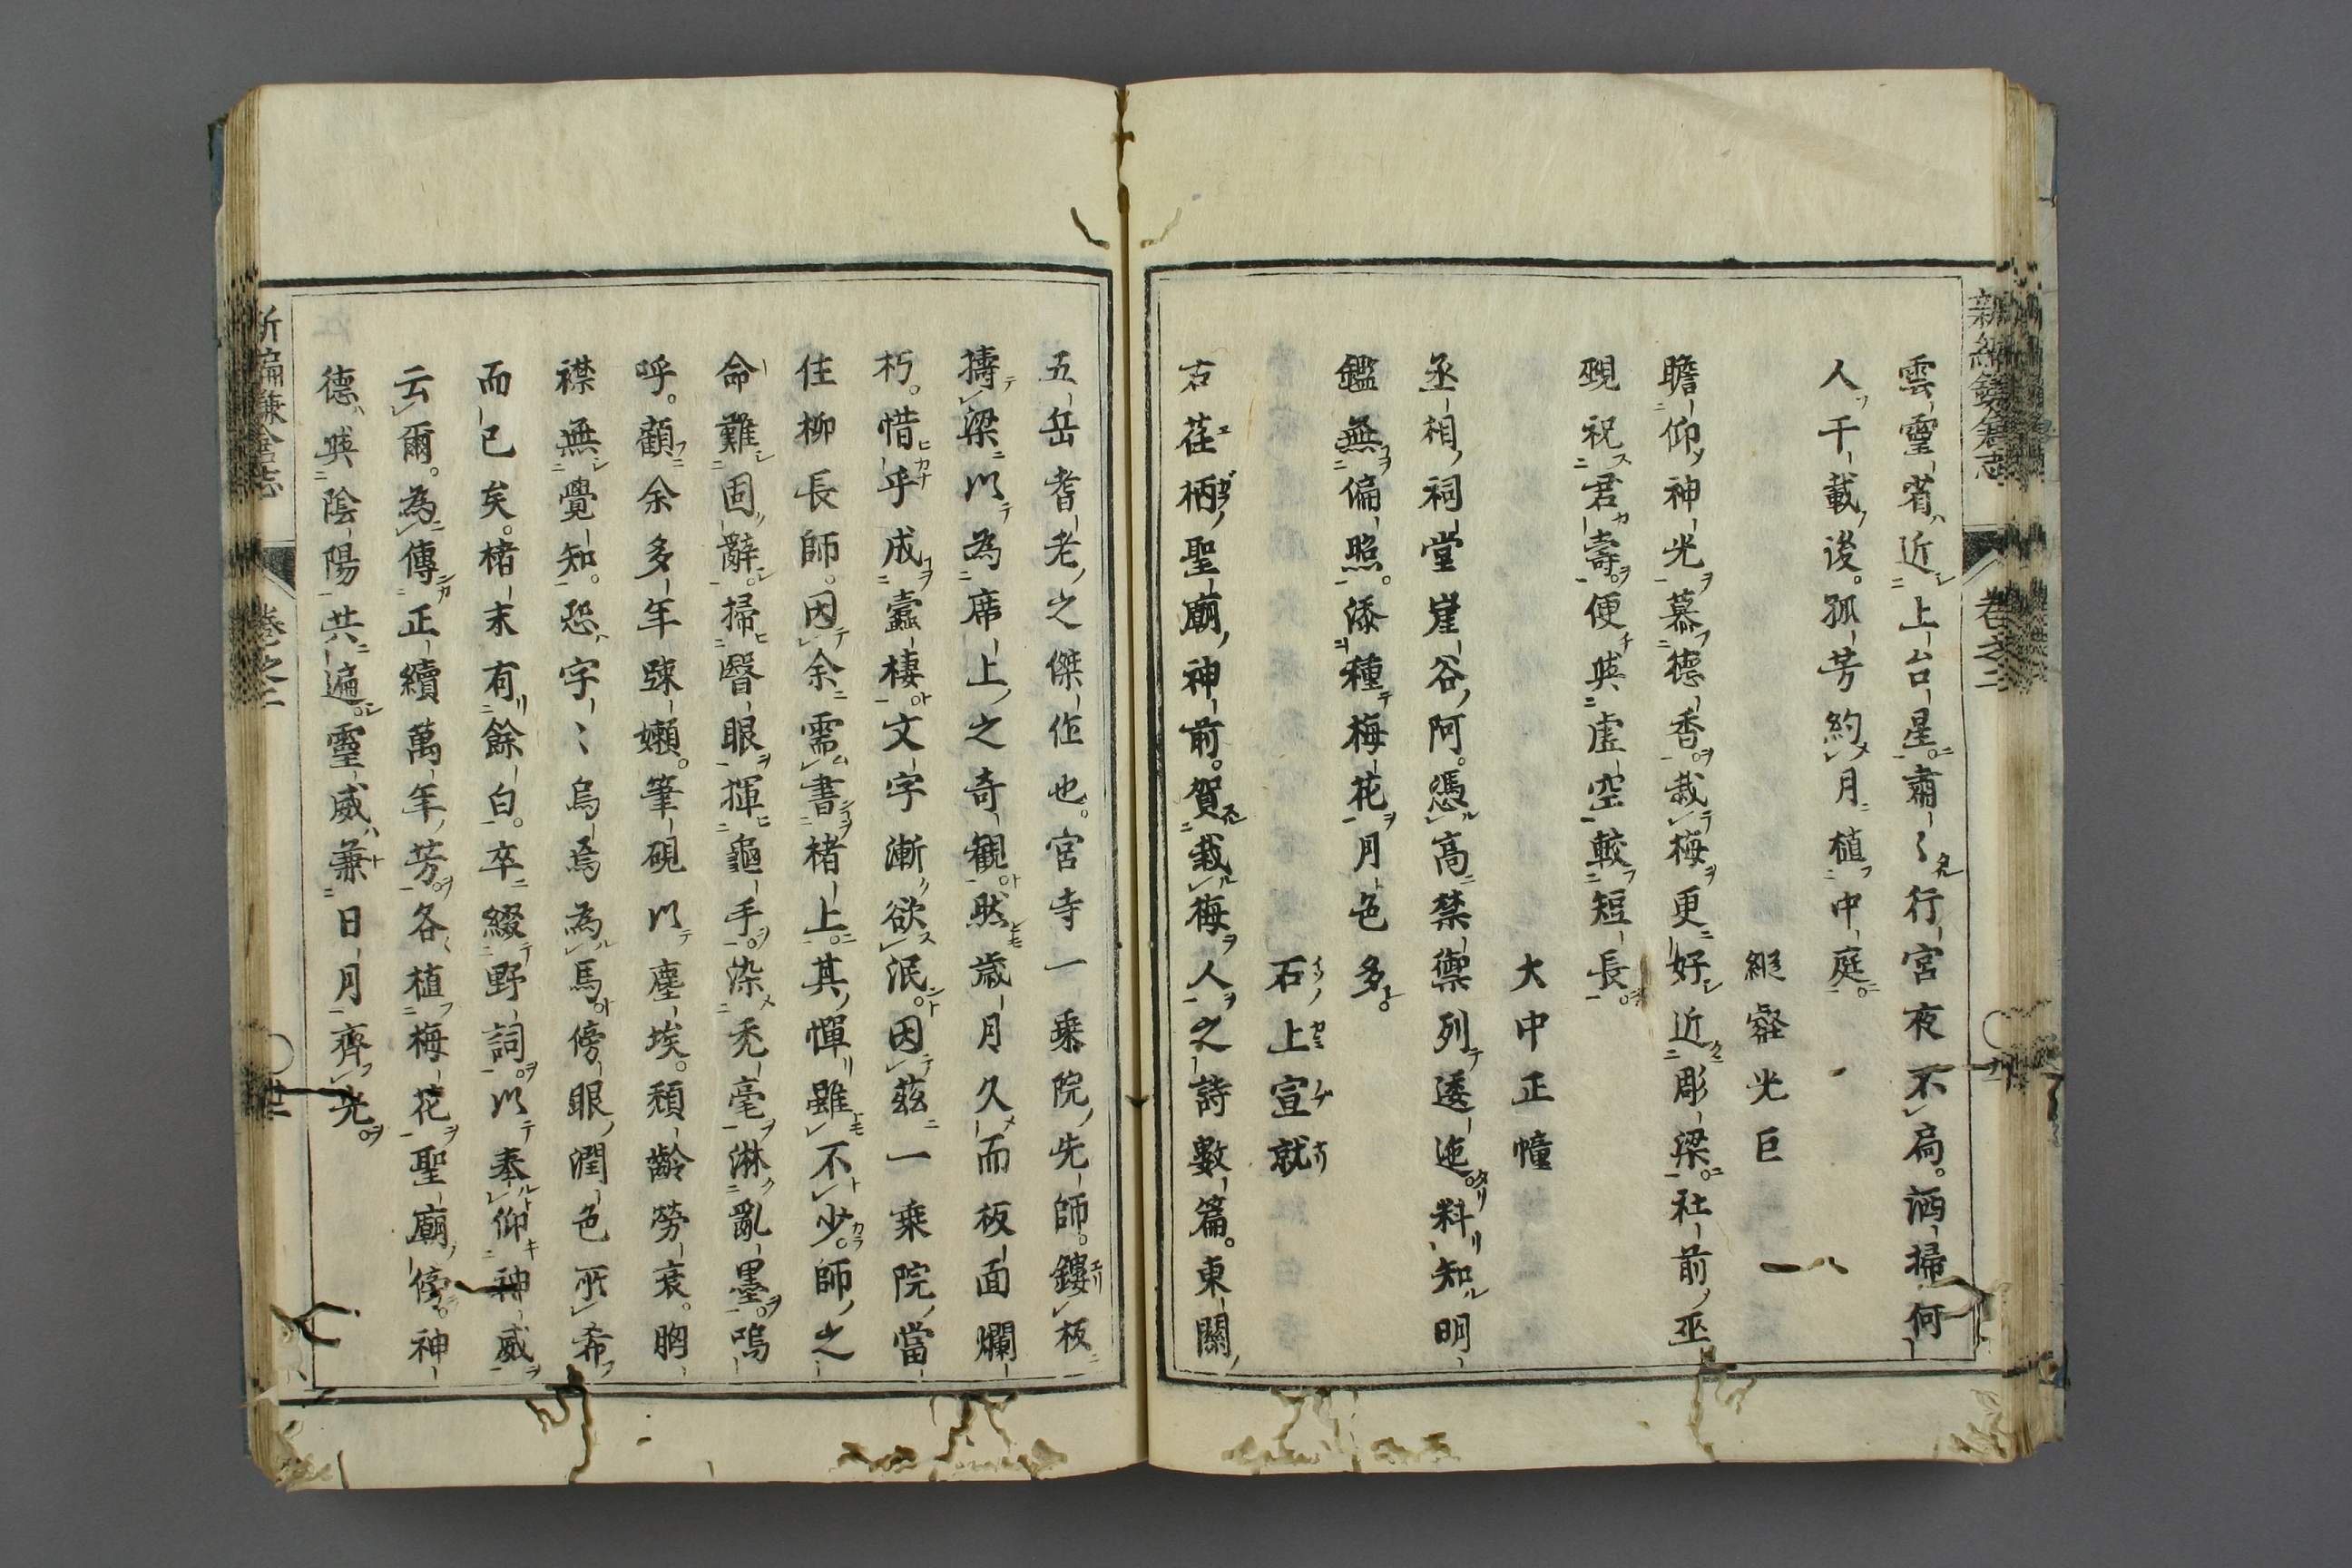 新編鎌倉志 卷之二
雲靈省近上台星肅〻行宮夜不扃。洒掃何
人千載後。孤芳約月植中庭。
縱壑光巨
瞻仰神光慕德香。栽梅更好近彫梁。社前巫
覡祝君壽。便與虛空較短長。
大中正幢
丞相祠堂崖谷阿。憑高禁禦列逶迤。料知明
鑑無偏照。添種梅花月色多。
石上宣就
右荏柄聖廟神前。賀栽梅人之詩數篇。東關
五岳耆老之傑作也。宮寺一乘院先師。鏤板
擣梁以為席上之奇觀。然歲月久而板面爛
朽。惜乎成蠹棲。文字漸欲泯。因茲一乘院當
住柳長師。因余需書楮上。其憚雖不少。師之
命難固辭。掃瞖眼揮龜手。染禿毫淋亂墨。嗚
呼。顧余多年踈嬾。筆硯以塵埃。頹齡勞衰。胸
襟無覺知。恐字〻烏焉為馬。傍眼潤色所希
而已矣。楮末有餘白。卒綴野詞。以奉仰神威
云爾。為傳正續萬年芳。各植梅花聖廟傍。神
德與陰陽共遍。靈威兼日月齊光。
新編鎌倉志 卷之二 廿